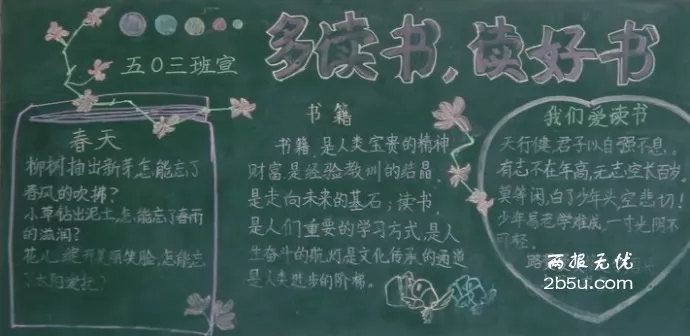 多读书，读好书
五〇三班宣
春天
柳树抽出新芽，怎能忘了
春风的吹拂？
小草钻出泥土，怎能忘了春雨
的滋润？
花儿绽开笑脸，怎能忘
太阳
书籍
书籍，是人类宝贵的精神
财富，是经验教训的结晶，
是走向未来的基石；读书，
是人们重要的学习方式，是人
生奋斗的航灯是文化传承的通道
是人类进步的阶梯。
我们爱读书
天行健，君子以自强不息。
有志不在年高，无志空长百岁。
莫等闲，白了少年头空悲切！
少年易老学难成，一寸光阴不
可轻。
路
两报无优
2b5u.com